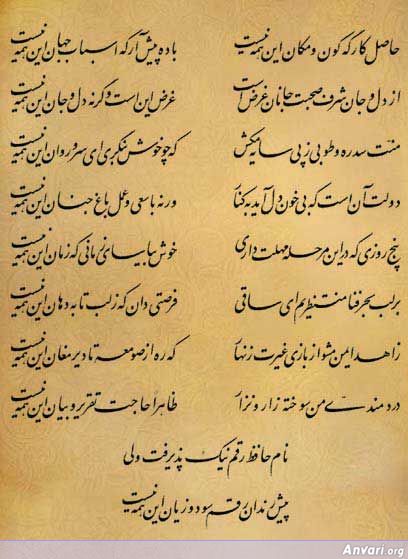 حاصل کارگه کون و مکان این همه نیست باده پیش آر که اسباب جهان این همه نیست
از دل و جان شرف صحبت جانان غرض است غرض این است وگرنه دل و جان این همه نیست
منت سدره و طوبی ز پی سایه مکش که چو خوش بنگری ای سرو روان این همه نیست
دولت آن است که بی خون دل آید به کنار ورنه با سعی و عمل باغ جنان این همه نیست
پنج روزی که در این مرحله مهلت داری خوش بیاسای زمانی که زمان این همه نیست
بر لب بحر فنا منتظریم ای ساقی فرصتی دان که ز لب تا به دهان این همه نیست
زاهد ایمن مشو از بازی غیرت زنهار که ره از صومعه تا دیر مغان این همه نیست
دردمندی من سوخته زار و نزار ظاهرا حاجت تقریر و بیان این همه نیست
نام حافظ رقم نیک پذیرفت ولی
پیش رندان رقم سود و زیان این همه نیست
Anvari.org